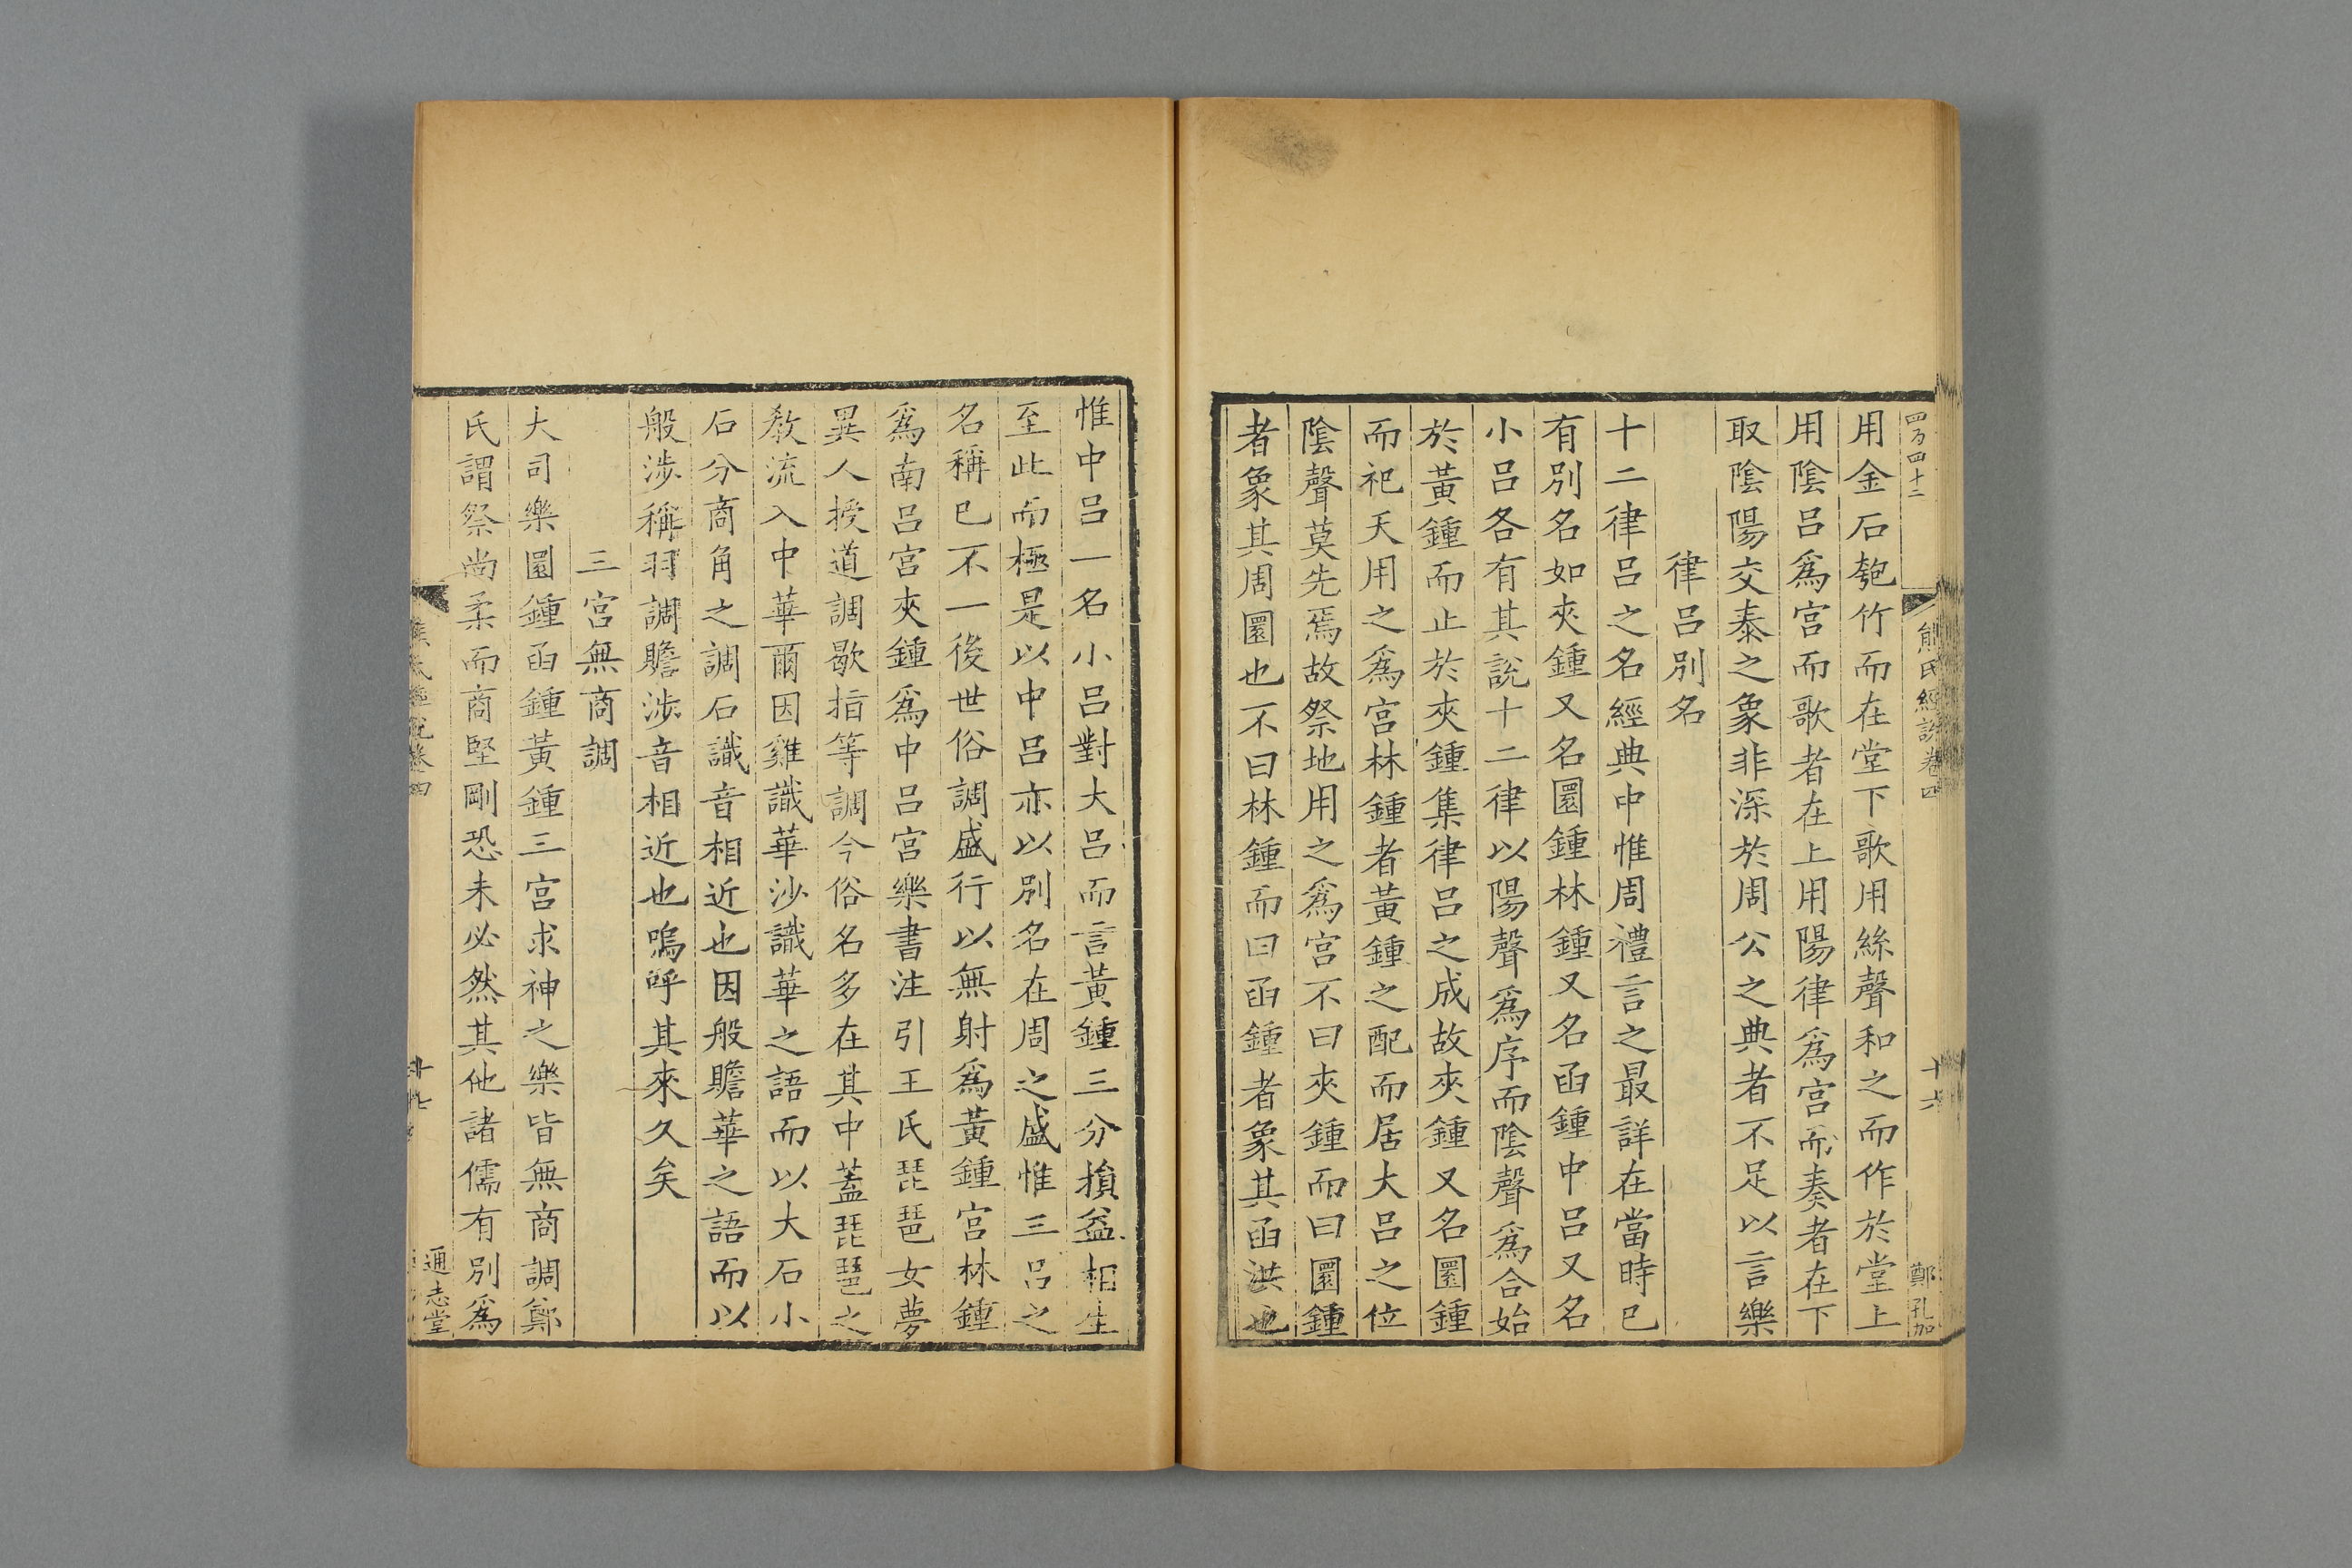 四万四十二
熊氏經說卷四
十六
鄭孔加
用金石匏竹而在堂下歌用絲聲和之而作於堂上
用隂呂爲宫而歌者在上用陽律爲宫而奏者在下
取隂陽交泰之象非深於周公之典者不足以言樂
律呂別名
十二律呂之名經典中惟周禮言之最詳在當時已
有別名如夾鍾又名圜鍾林鍾又名函鍾中呂又名
小呂各有其說十二律以陽聲爲序而隂聲爲合始
於黃鍾而止於夾鍾集律呂之成故夾鍾又名圜鍾
而祀天用之爲宫林鍾者黃鍾之配而居大呂之位
隂聲莫先焉故祭地用之爲宫不曰夾鍾而曰圜鍾
者象其周圜也不曰林鍾而曰函鍾者象其函洪也
惟中呂一名小呂對大呂而言黃鍾三分損益相生
至此而極是以中呂亦以別名在周之盛惟三呂之
名稱已不一後世俗調盛行以無射爲黃鍾宫林鍾
爲南呂宫夾鍾爲中呂宫樂書注引王氏琵琶女夢
異人授道調歇指等調今俗名多在其中蓋琵琶之
敎流入中華爾因雞識華沙識華之語而以大石小
石分商角之調石識音相近也因般贍華之語而以
般涉稱羽調贍涉音相近也嗚呼其來久矣
三宫無商調
大司樂圜鍾函鍾黃鍾三宫求神之樂皆無商調鄭
氏謂祭尚柔而商堅剛恐未必然其他諸儒有別爲
熊氏經說卷四
十七
通志堂